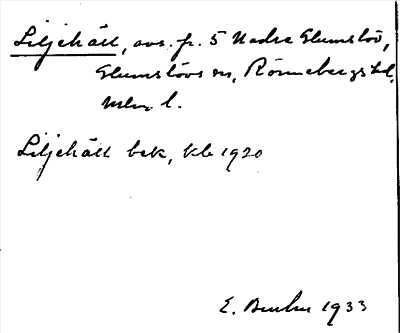 Liljehäll, avs. fr. 5 Nedra Glumslöv,
Glumslövs sn, Rönnebergs hd,
Mlm l.
Liljehäll bek, kb 1920
E. 1933